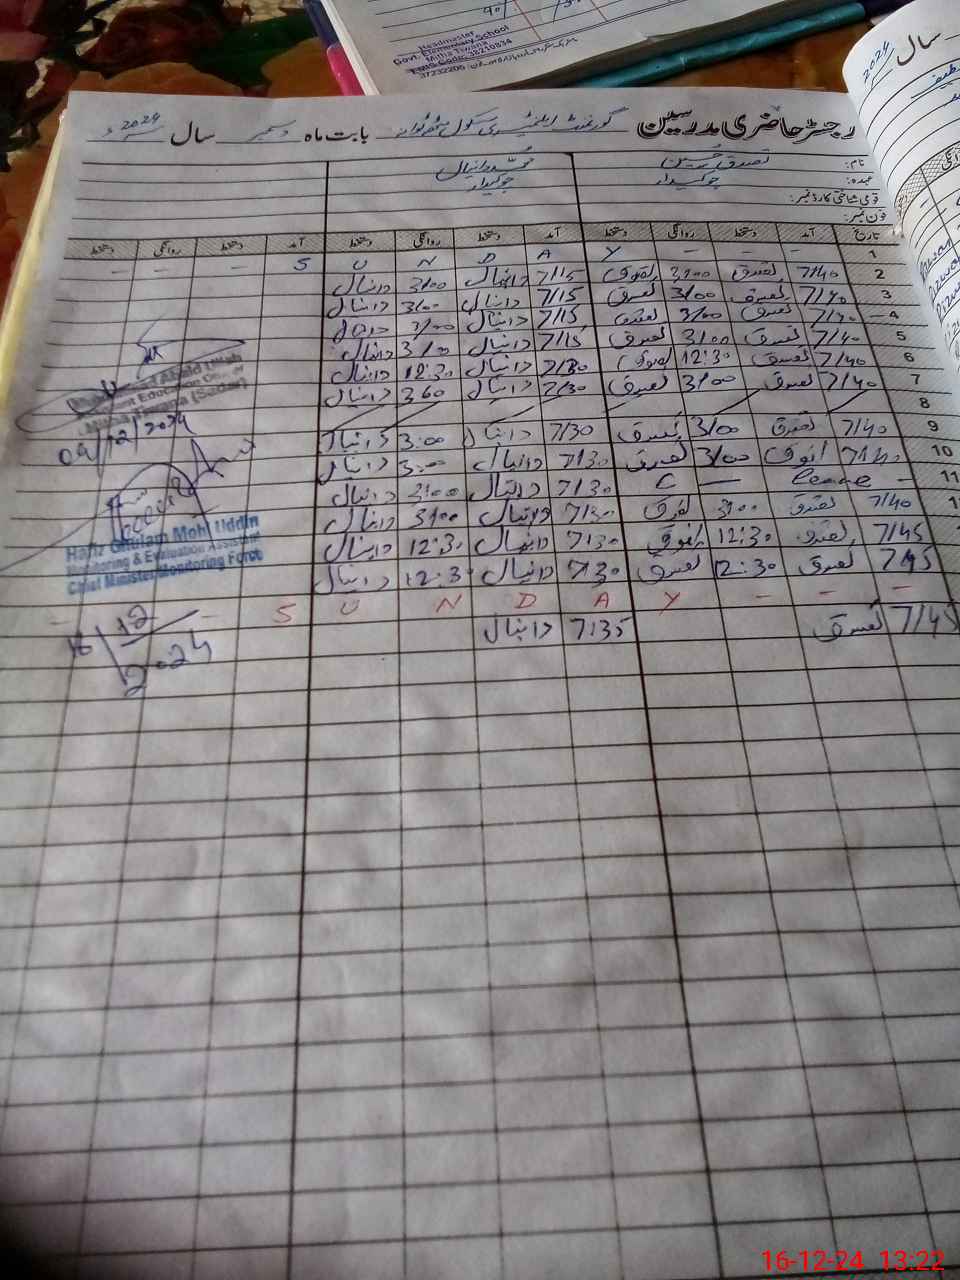 Headmaster
Govt. Elementary School
Mitha Tiwana
EMIS Code: 38210834
37232206
سال 2024
رجسٹر حاضری مدرسین گورنمنٹ ایلیمنٹری سکول مٹھہ ٹوانہ بابت ماہ دسمبر سال 2024ء
نام: تصدق حسین محمد دانیال
عہدہ: چوکیدار چوکیدار
قومی شناختی کارڈ نمبر:
فون نمبر:
تاریخ آمد دستخط روانگی دستخط آمد دستخط روانگی دستخط آمد دستخط روانگی دستخط
1 - - Y A D N U S - - -
2 7/40 تصدق 3/00 تصدق 7/15 دانیال 3/00 دانیال
3 7/40 تصدق 3/00 تصدق 7/15 دانیال 3/00 دانیال
4 تصدق 3/00 تصدق 7/15 دانیال 3/00 دانیال
5 7/40 تصدق 3/00 تصدق 7/15 دانیال 3/00 دانیال
6 7/40 تصدق 12:30 تصدق دانیال 12:30 دانیال
7 7/40 تصدق 3/00 تصدق 7/30 دانیال دانیال
8
9 7/40 تصدق 3/00 تصدق 7/30 دانیال 3:00 دانیال
10 7/40 تصدق 3/00 تصدق 7/30 دانیال 3:00 دانیال
11 - Leave - C 7/30 دانیال 3/00 دانیال
7/40 تصدق 3/00 تصدق 7/30 دانیال 3/00 دانیال
7/45 تصدق 12:30 تصدق 7:30 دانیال 12:30 دانیال
7/45 تصدق 12:30 تصدق 7:30 دانیال 12:30 دانیال
- - - Y A D N U S - -
7/45 تصدق 7:35 دانیال
09/12/2024
Hafiz Ghulam Mohi Uddin
Monitoring & Evaluation Assistant
Chief Minister Monitoring Force
16/12/2024
16-12-24 13:22